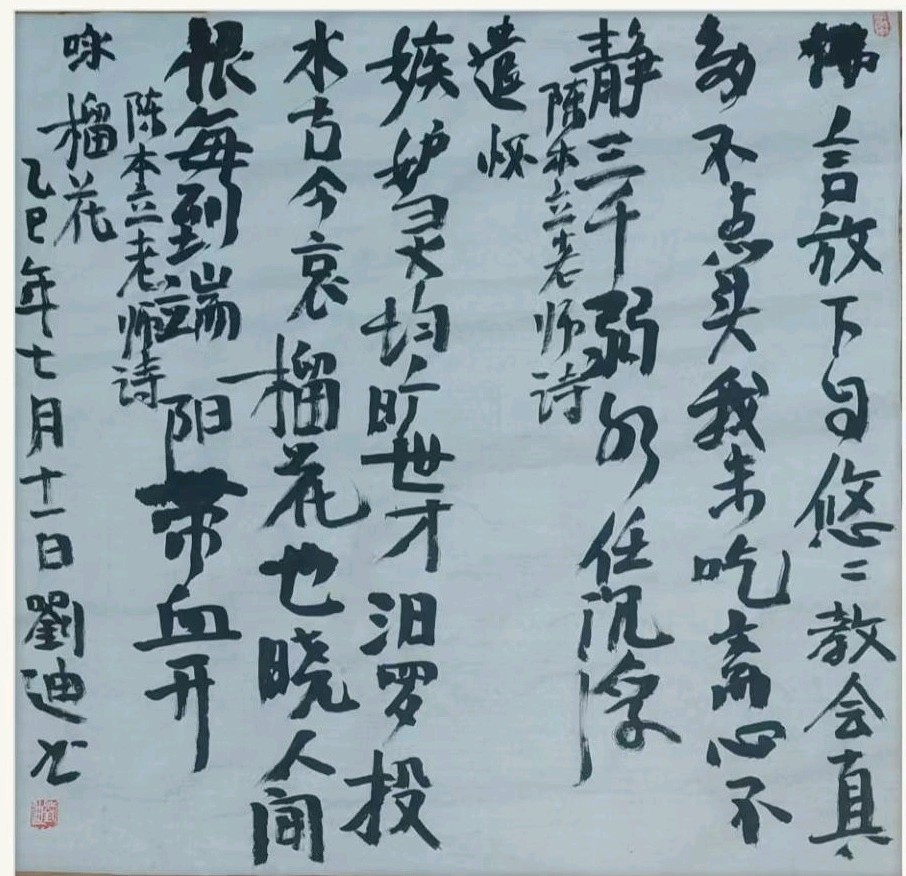 佛言放下自悠二教会真
如不点头我未吃斋心不
静三千弱水任沉浮
陈本立老师诗
遣怀
嫉妒灵均旷世才汨罗投
水古今哀榴花也晓人间
恨每到端阳带血开
陈本立老师诗
咏榴花
乙巳年七月十一日劉迪书